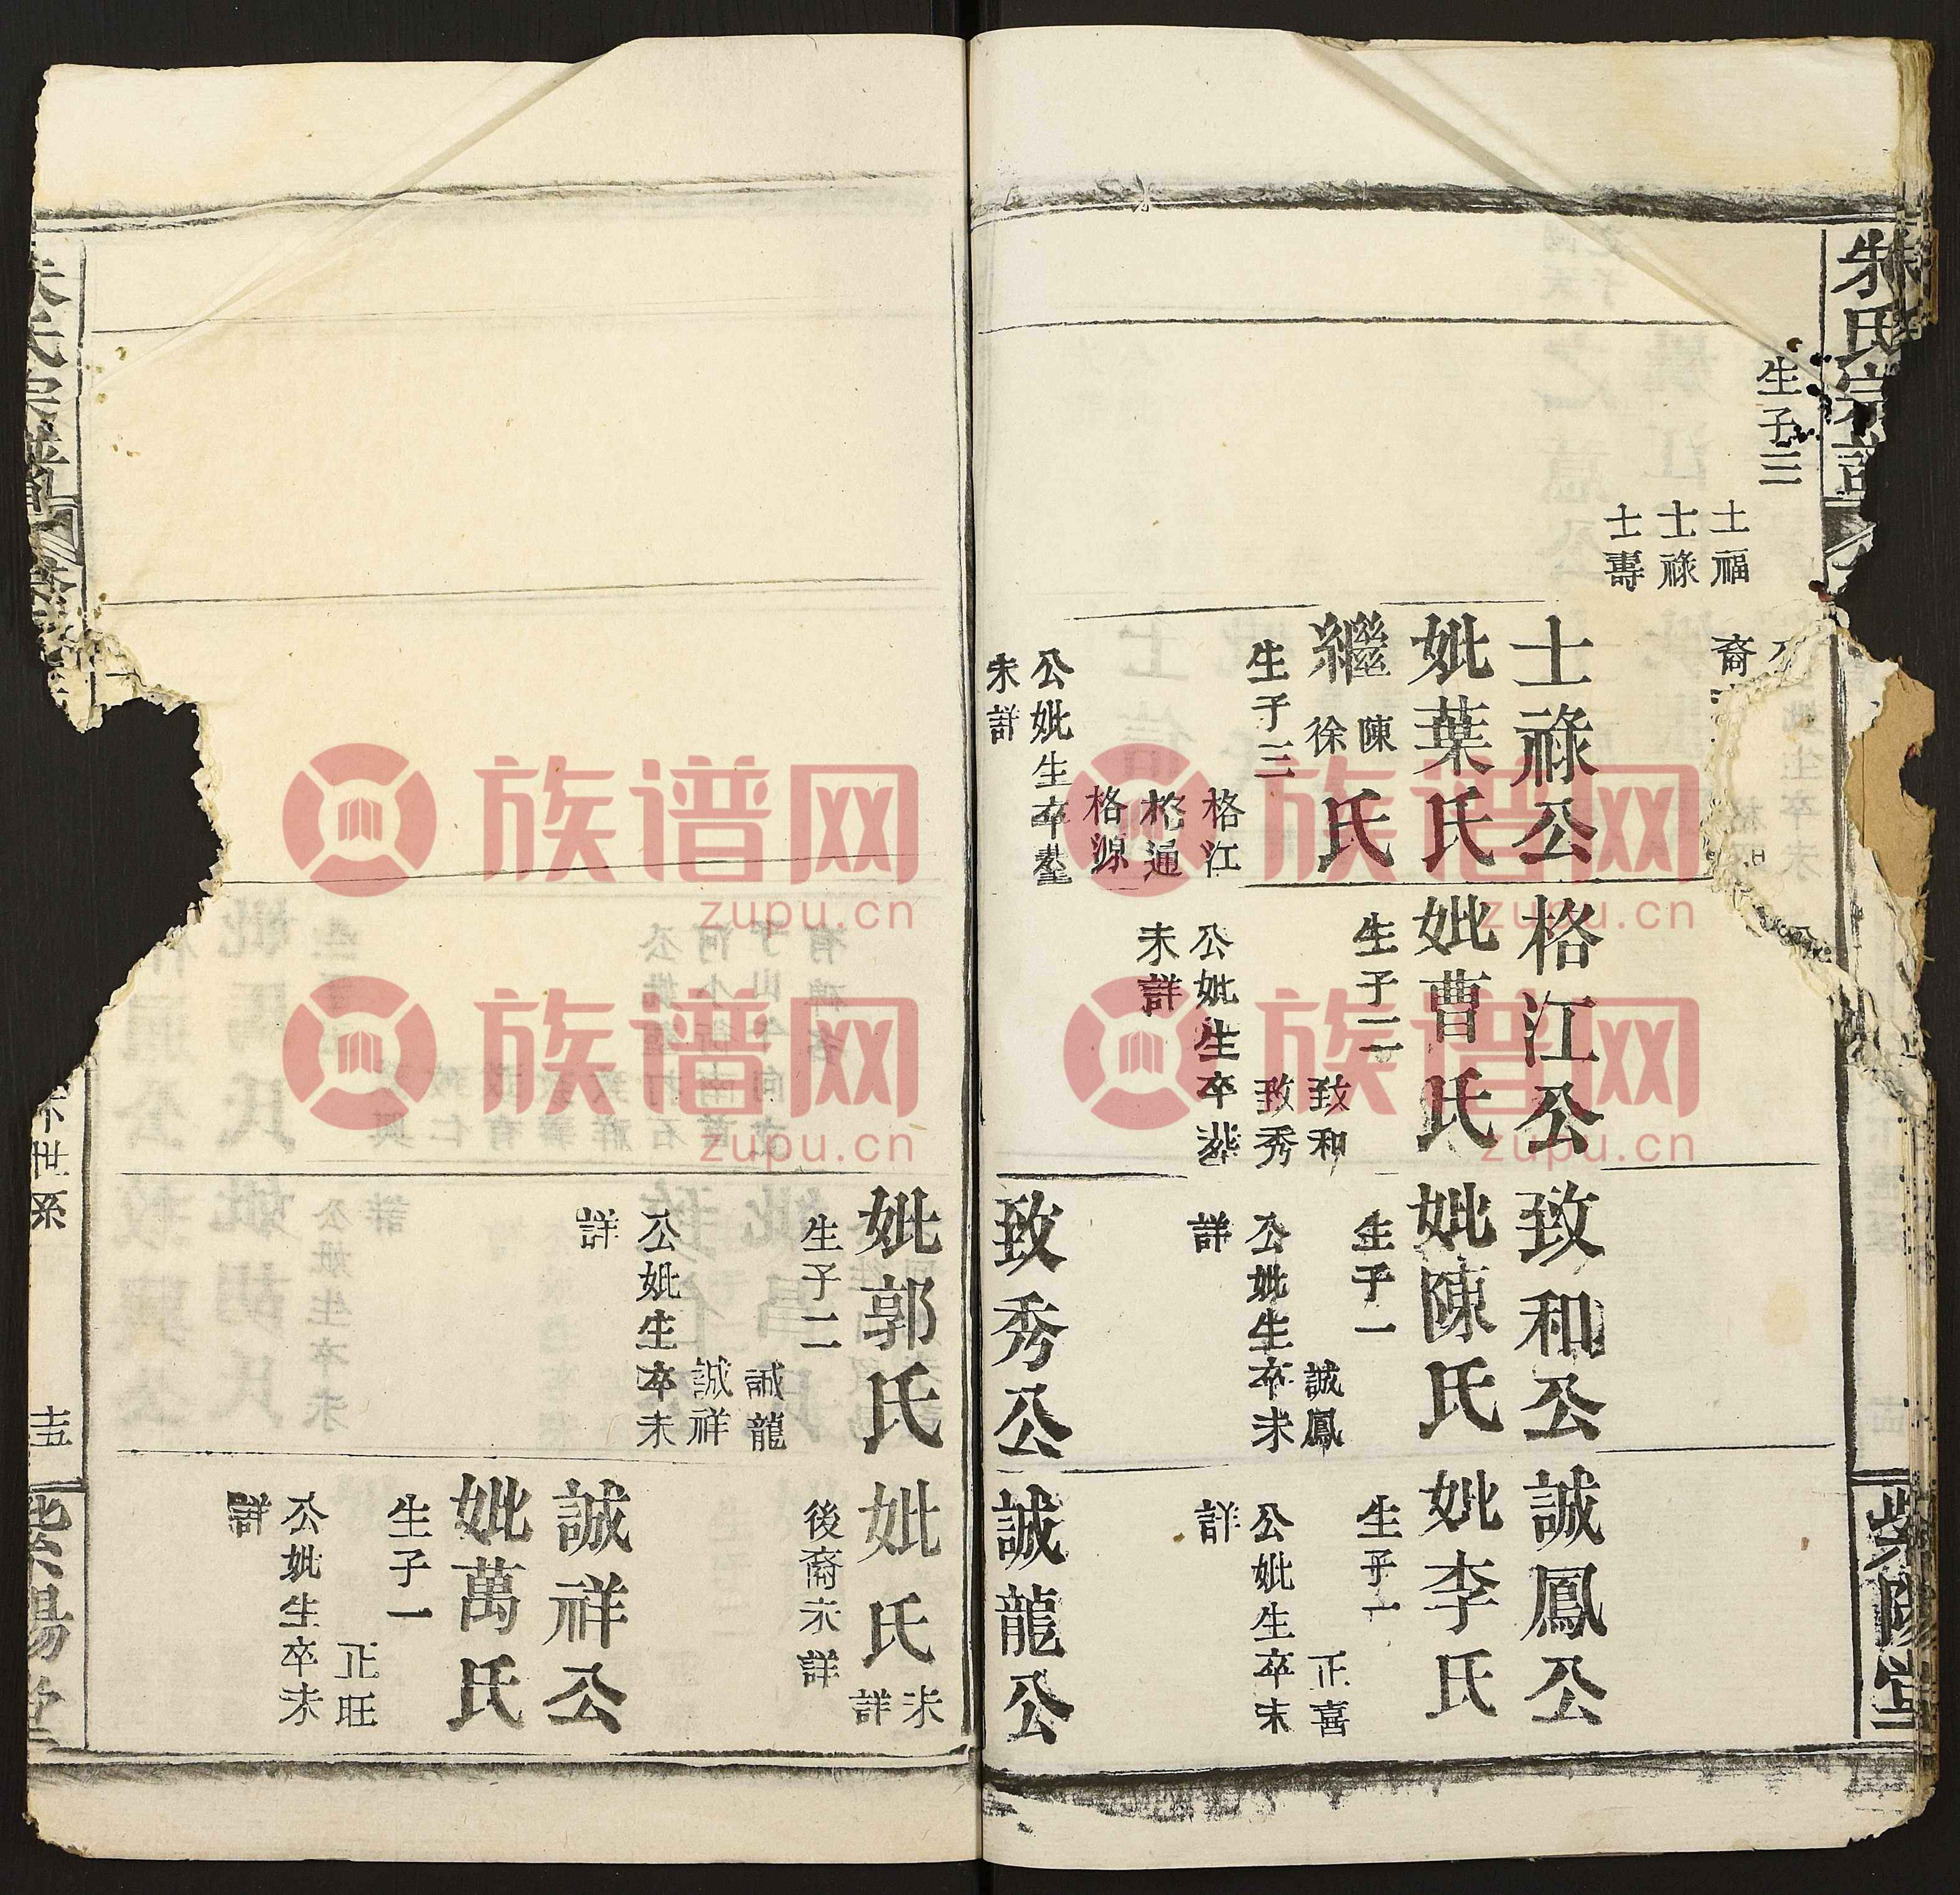 朱氏宗譜
生子三
士福
士祿
士壽
裔
士祿公
妣葉氏
繼陳徐氏
生子三
格江
格通
格源
公妣生卒塟
未詳
格江公
妣曹氏
生子二
致和
致秀
公妣生卒塟
未詳
致和公
妣陳氏
生子一
誠鳳
公妣生卒未
詳
致秀公
誠鳳公
妣李氏
生子一
正喜
公妣生卒未
詳
誠龍公
紫陽堂
妣郭氏
生子二
誠龍
誠祥
公妣生卒未
詳
妣 氏未詳
後裔未詳
誠祥公
妣萬氏
生子一
正旺
公妣生卒未
詳
朱氏宗譜
世系
十五
紫陽堂
族谱网
zupu.cn
族谱网
zupu.cn
族谱网
zupu.cn
族谱网
zupu.cn